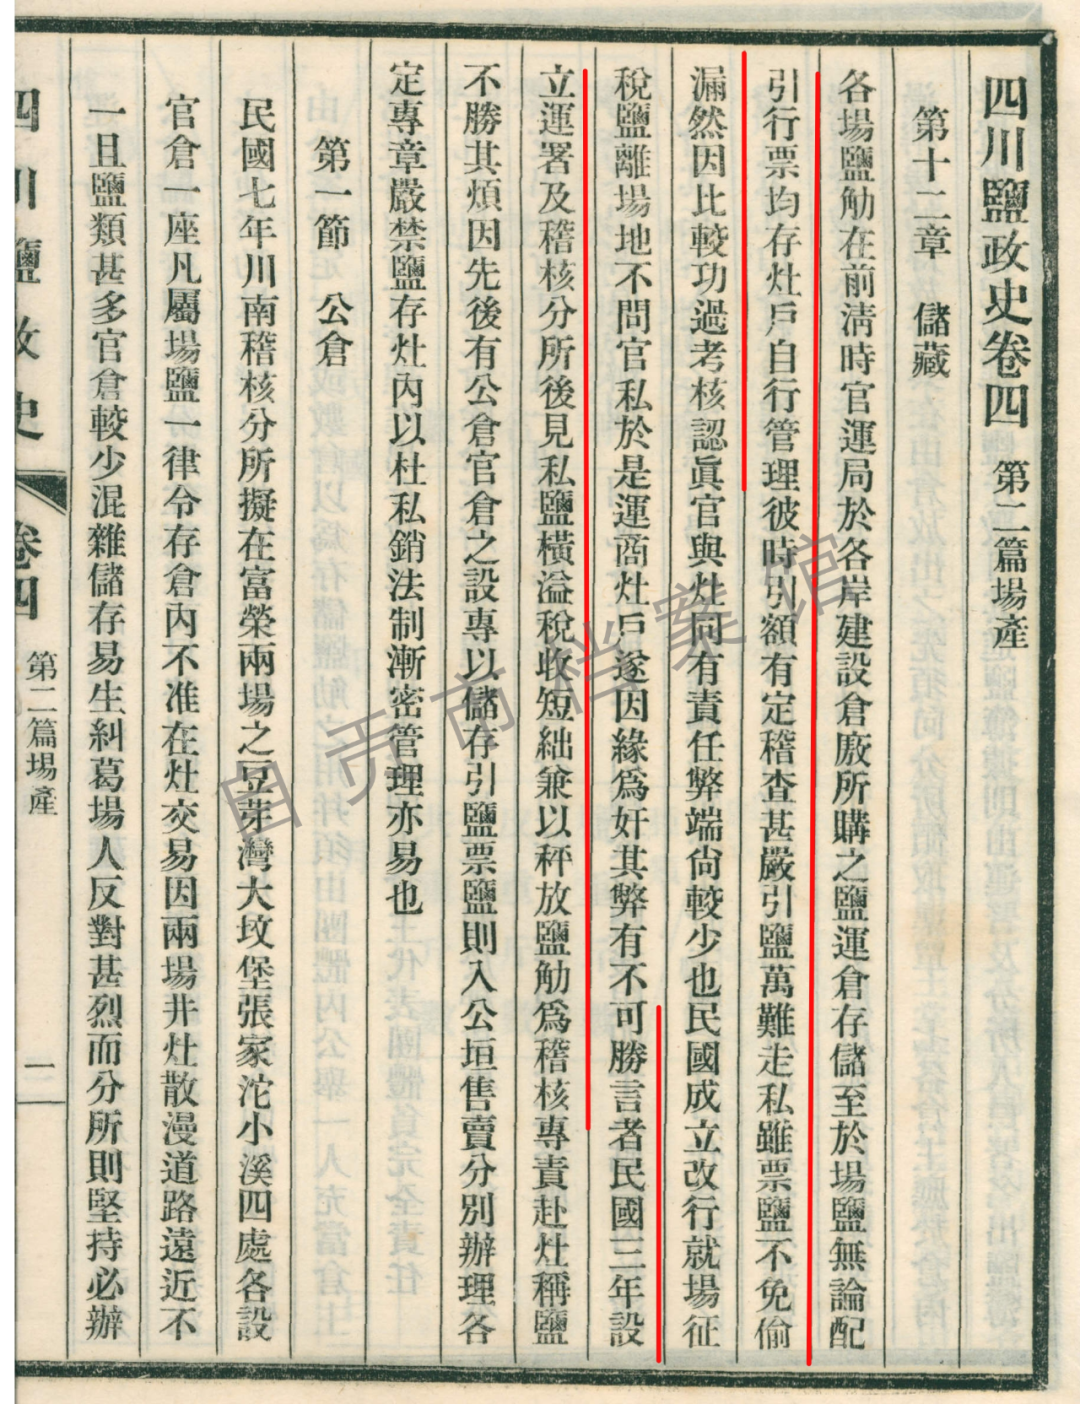 四川鹽政史卷四　第二篇場產
第十二章　儲藏
各場鹽觔在前淸時官運局於各岸建設倉厫所購之鹽運倉存儲至於場鹽無論配
引行票均存灶戶自行管理彼時引額有定稽查甚嚴引鹽萬難走私雖票鹽不免偷
漏然因比較功過考核認眞官與灶同有責任弊端尙較少也民國成立改行就場征
稅鹽離場地不問官私於是運商灶戶遂因緣爲奸其弊有不可勝言者民國三年設
立運署及稽核分所後見私鹽橫溢稅收短絀兼以秤放鹽觔爲稽核專責赴灶稱鹽
不勝其煩因先後有公倉官倉之設專以儲存引鹽票鹽則入公垣售賣分別辦理各
定專章嚴禁鹽存灶內以杜私銷法制漸密管理亦易也
第一節　公倉
民國七年川南稽核分所擬在富榮兩場之豆芽灣大坟堡張家沱小溪四處各設
官倉一座凡屬場鹽一律令存倉內不准在灶交易因兩場井灶散漫道路遠近不
一且鹽類甚多官倉較少混雜儲存易生糾葛場人反對甚烈而分所則堅持必辦
四川鹽政史　卷四　第二篇場產　一
自贡市档案馆